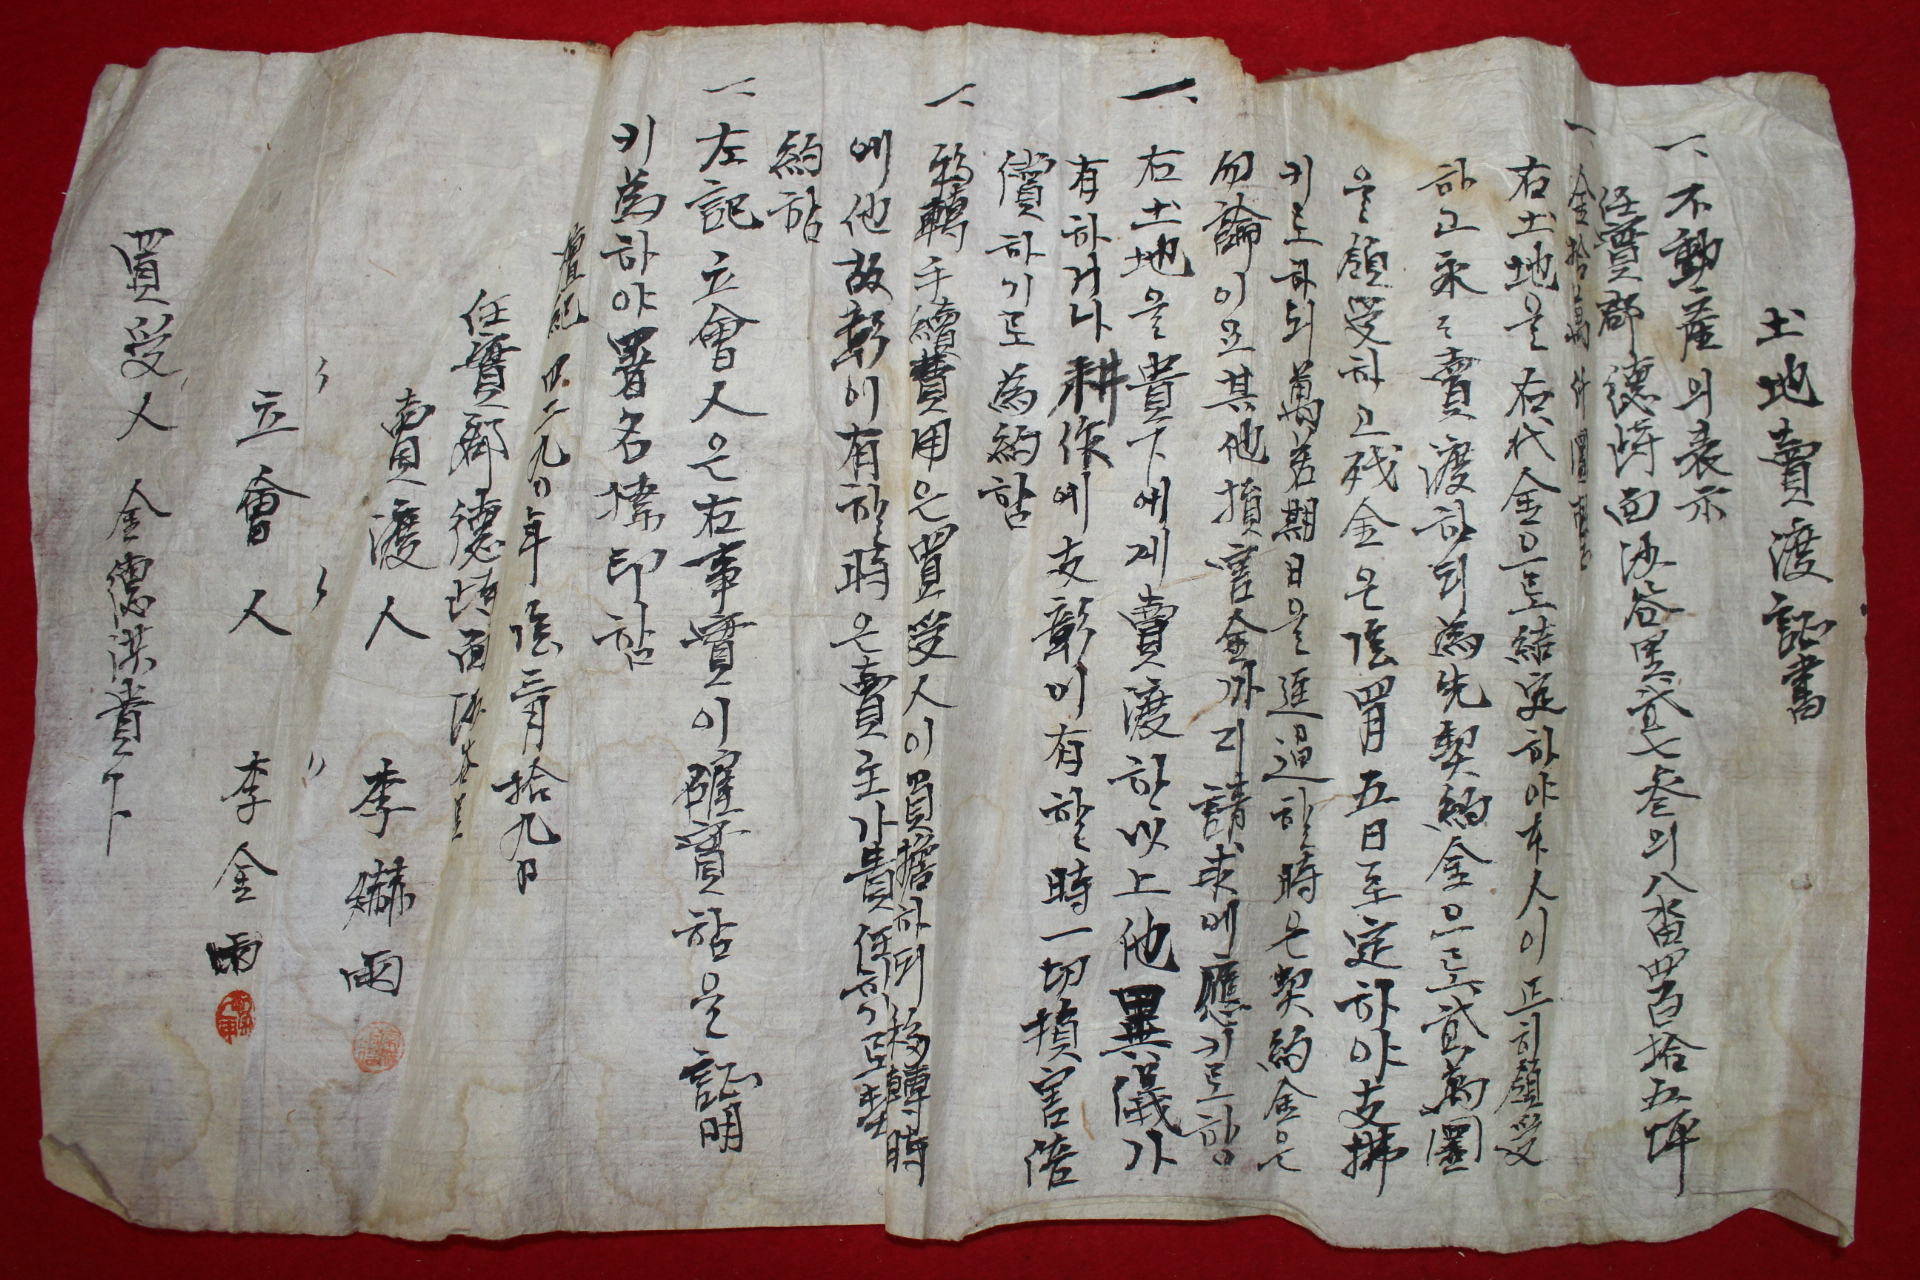 土地賣渡証書
一、不動産의表示
任實郡德峙面沙谷里貳七叁의八畓四百拾五坪
一、金拾萬什圜
右土地을右代金으로結定하야本人이正히領受
하고永々賣渡하되為先契約金으로貳萬圜
을領受하고残金은陰四月五日至定하야支拂
키로하되萬若期日을進過할時은契約金은
勿論이요其他損害金까지請求에應키로함
一、右土地을貴下에게賣渡한以上他異儀가
有하거나耕作에支彰이有할時一切損害陪
償하기로為約함
一、移轉手續費用은買受人이負擔하되移轉時
에他故彰이有할時은賣主가責任하기로契
約함
一、左記立會人은右事實이確實함을証明
키為하야署名捺印함
檀紀四二九〇年陰三月拾九日
任實郡德峙面沙谷里
賣渡人 李 雨
〃 〃 〃
立會人 李金雨
買受人 金德洪貴下